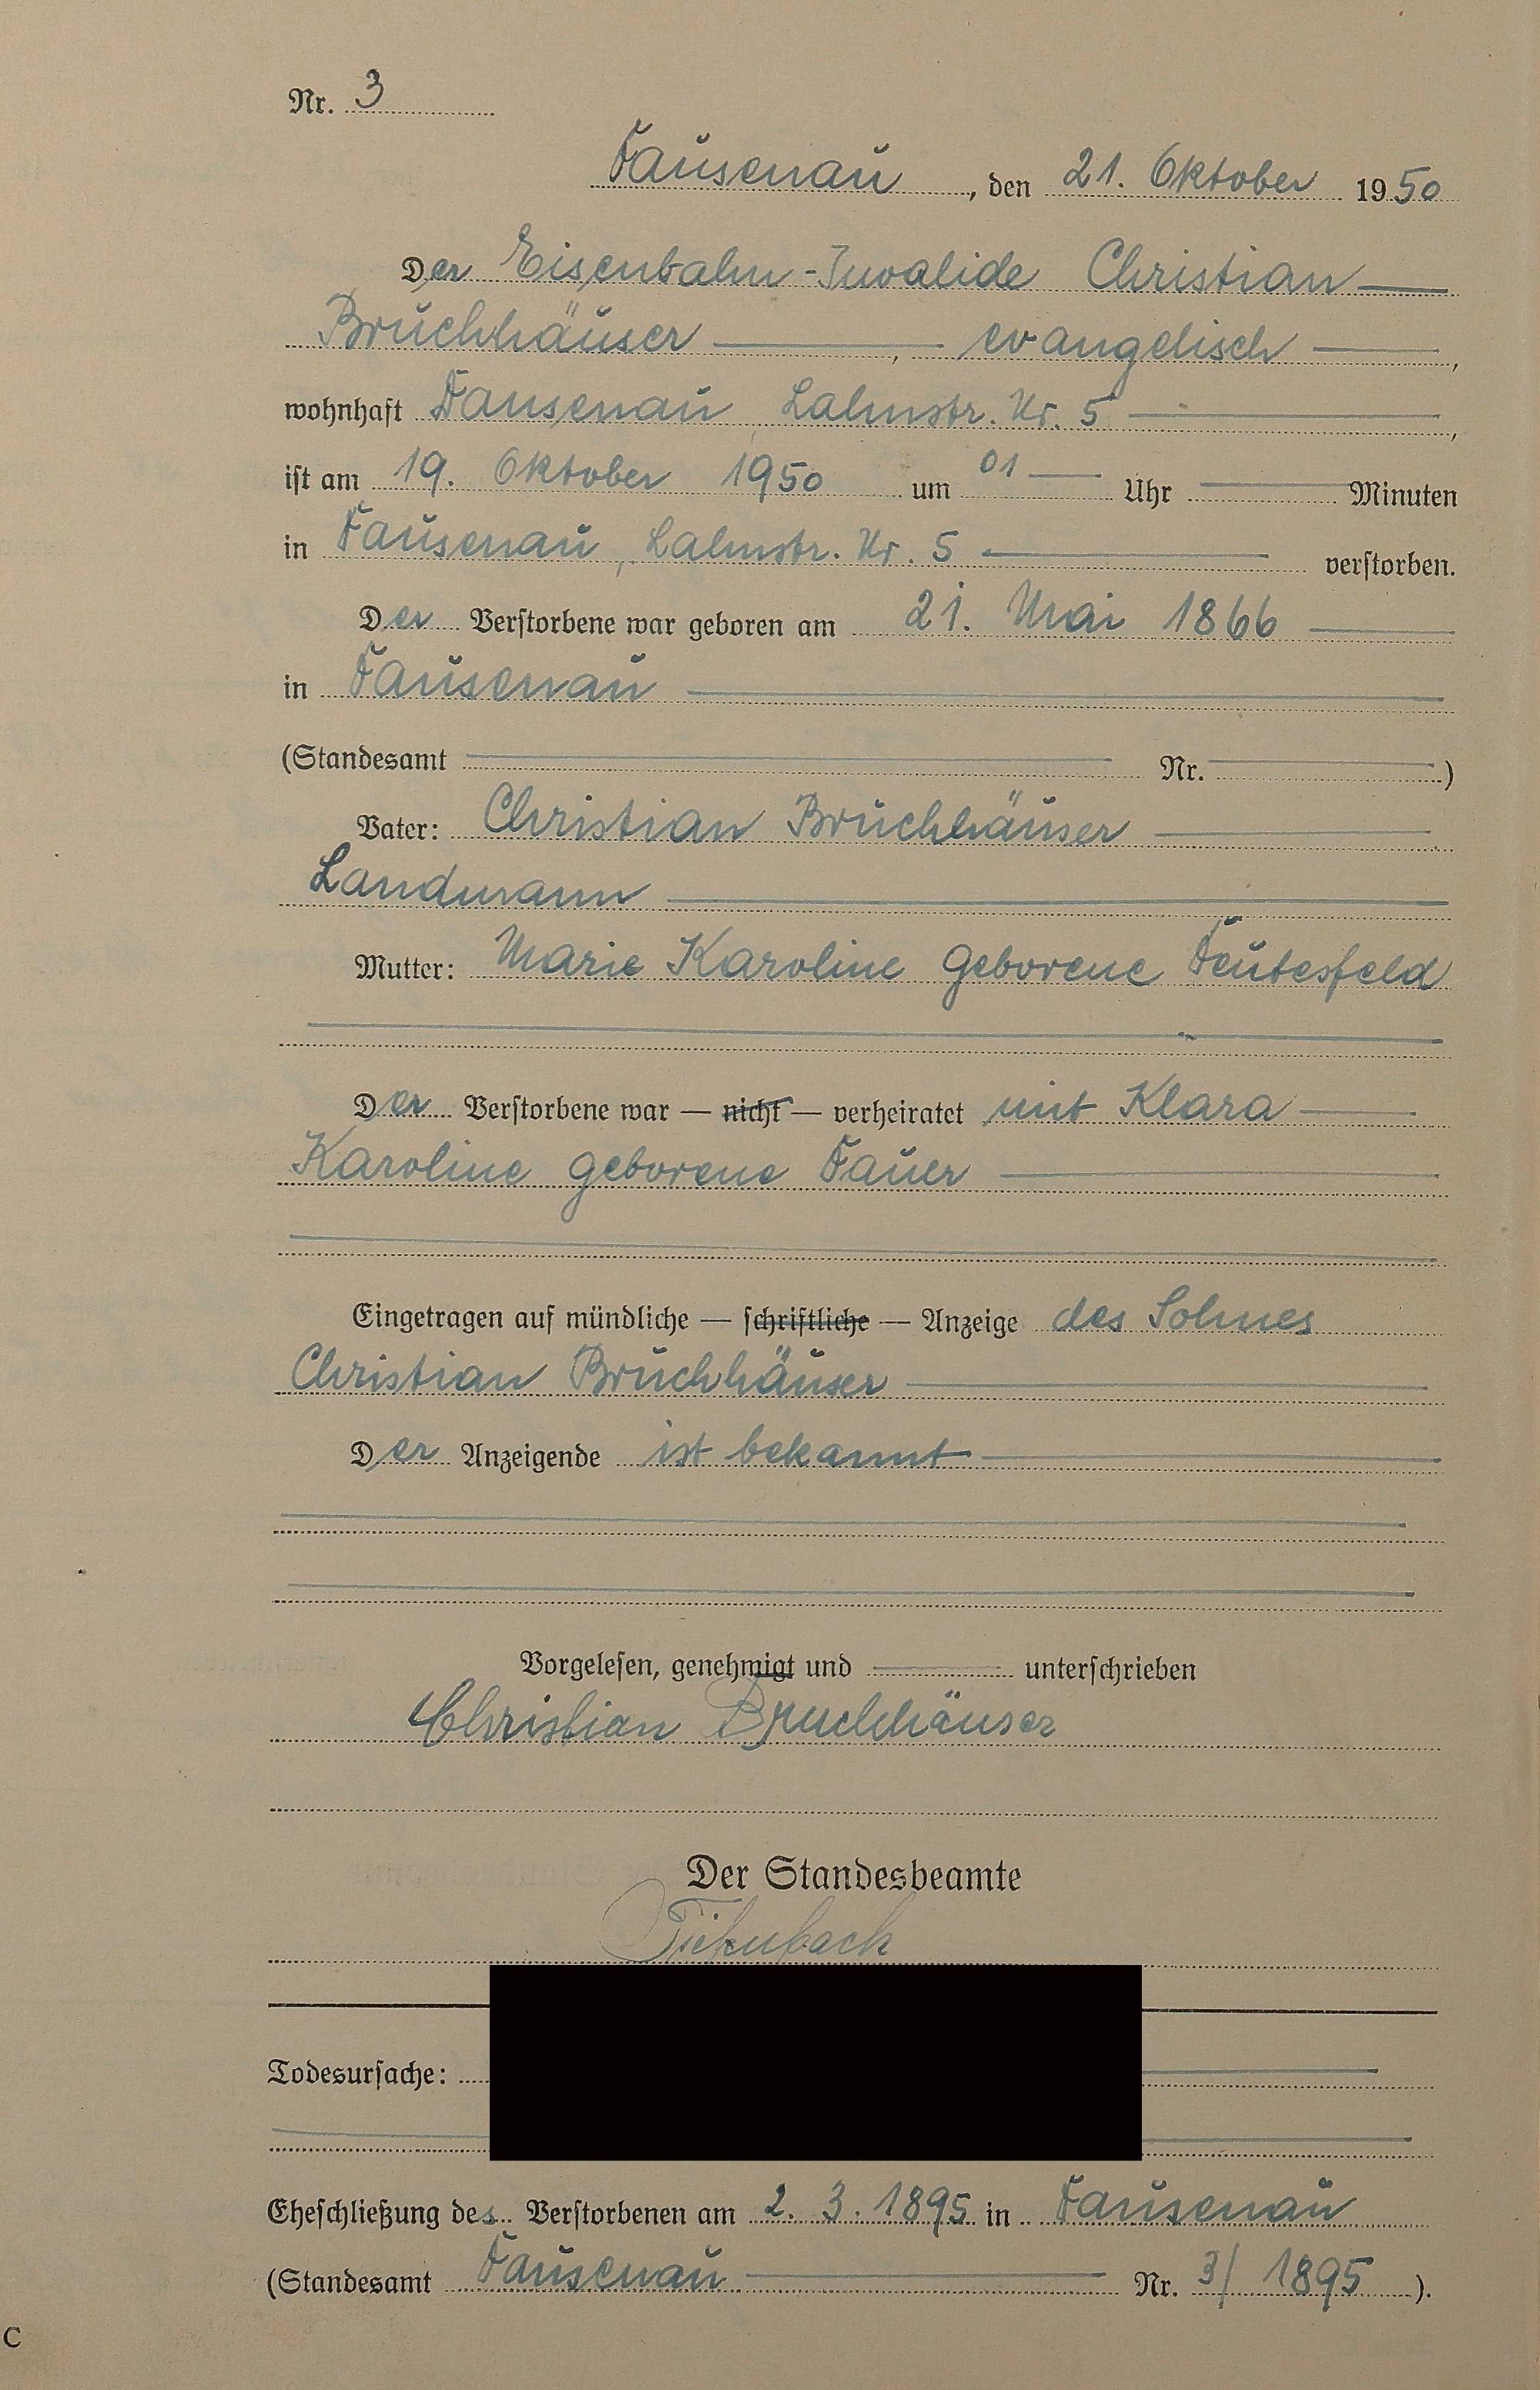 Nr. 3
Dausenau, den 21. Oktober 1950
Der Eisenbahn-Invalide Christian
Bruchhäuser, evangelisch,
wohnhaft Dausenau, Lahnstr. Nr. 5,
ist am 19. Oktober 1950 um 01 Uhr Minuten
in Dausenau, Lahnstr. Nr. 5 verstorben.
Der Verstorbene war geboren am 21. Mai 1866
in Dausenau
(Standesamt Nr. )
Vater: Christian Bruchhäuser
Landmann
Mutter: Marie Karoline geborene Deutesfeld
Der Verstorbene war — nicht — verheiratet mit Klara
Karoline geborene Dauer
Eingetragen auf mündliche — schriftliche — Anzeige des Sohnes
Christian Bruchhäuser
Der Anzeigende ist bekannt
Vorgelesen, genehmigt und unterschrieben
Christian Bruchhäuser
Der Standesbeamte
Todesursache:
Eheschließung des Verstorbenen am 2. 3. 1895 in Dausenau
(Standesamt Dausenau Nr. 3/1895).
C